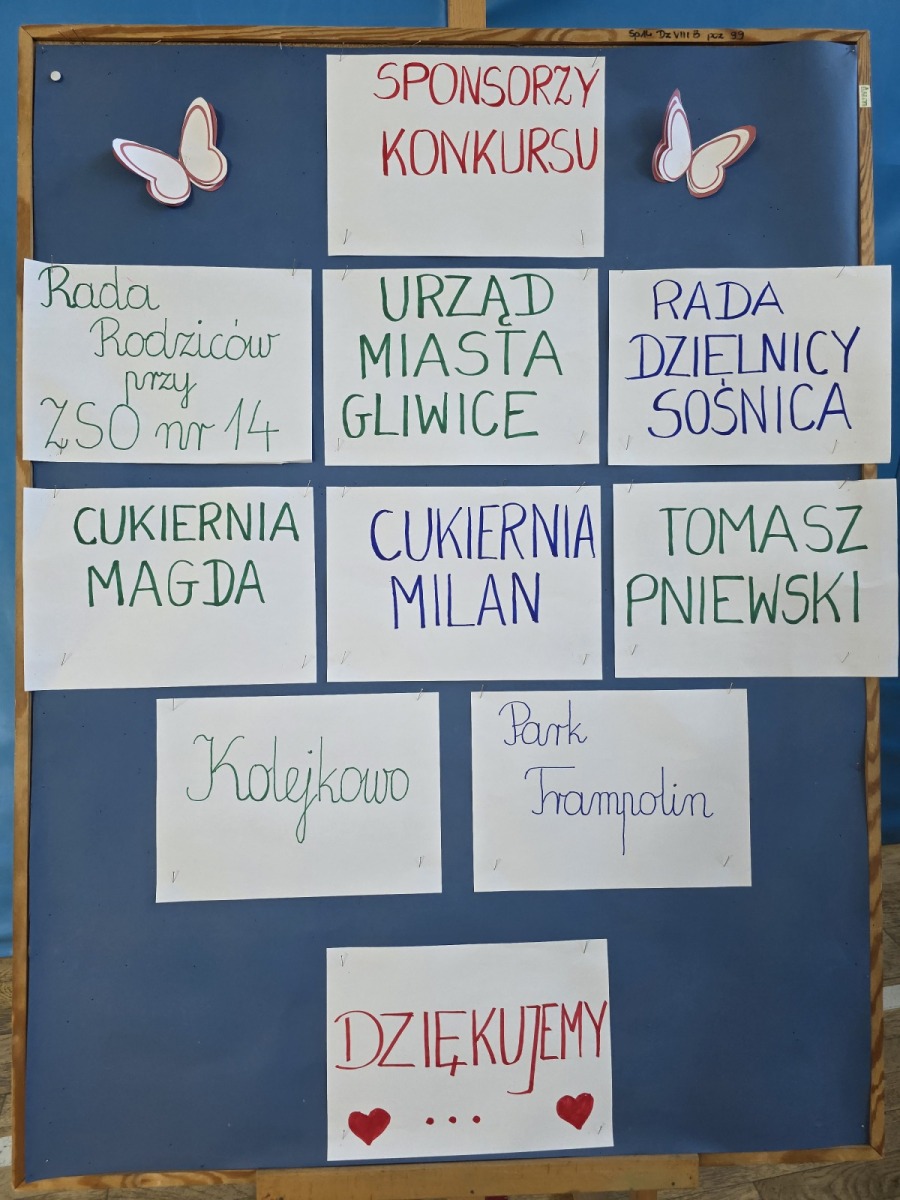 Sp14 Dz VIII B poz 99
SPONSORZY
KONKURSU
Rada
Rodziców
przy
ZSO nr 14
URZĄD
MIASTA
GLIWICE
RADA
DZIELNICY
SOŚNICA
CUKIERNIA
MAGDA
CUKIERNIA
MILAN
TOMASZ
PNIEWSKI
Kolejkowo
Park
Trampolin
DZIĘKUJEMY
...